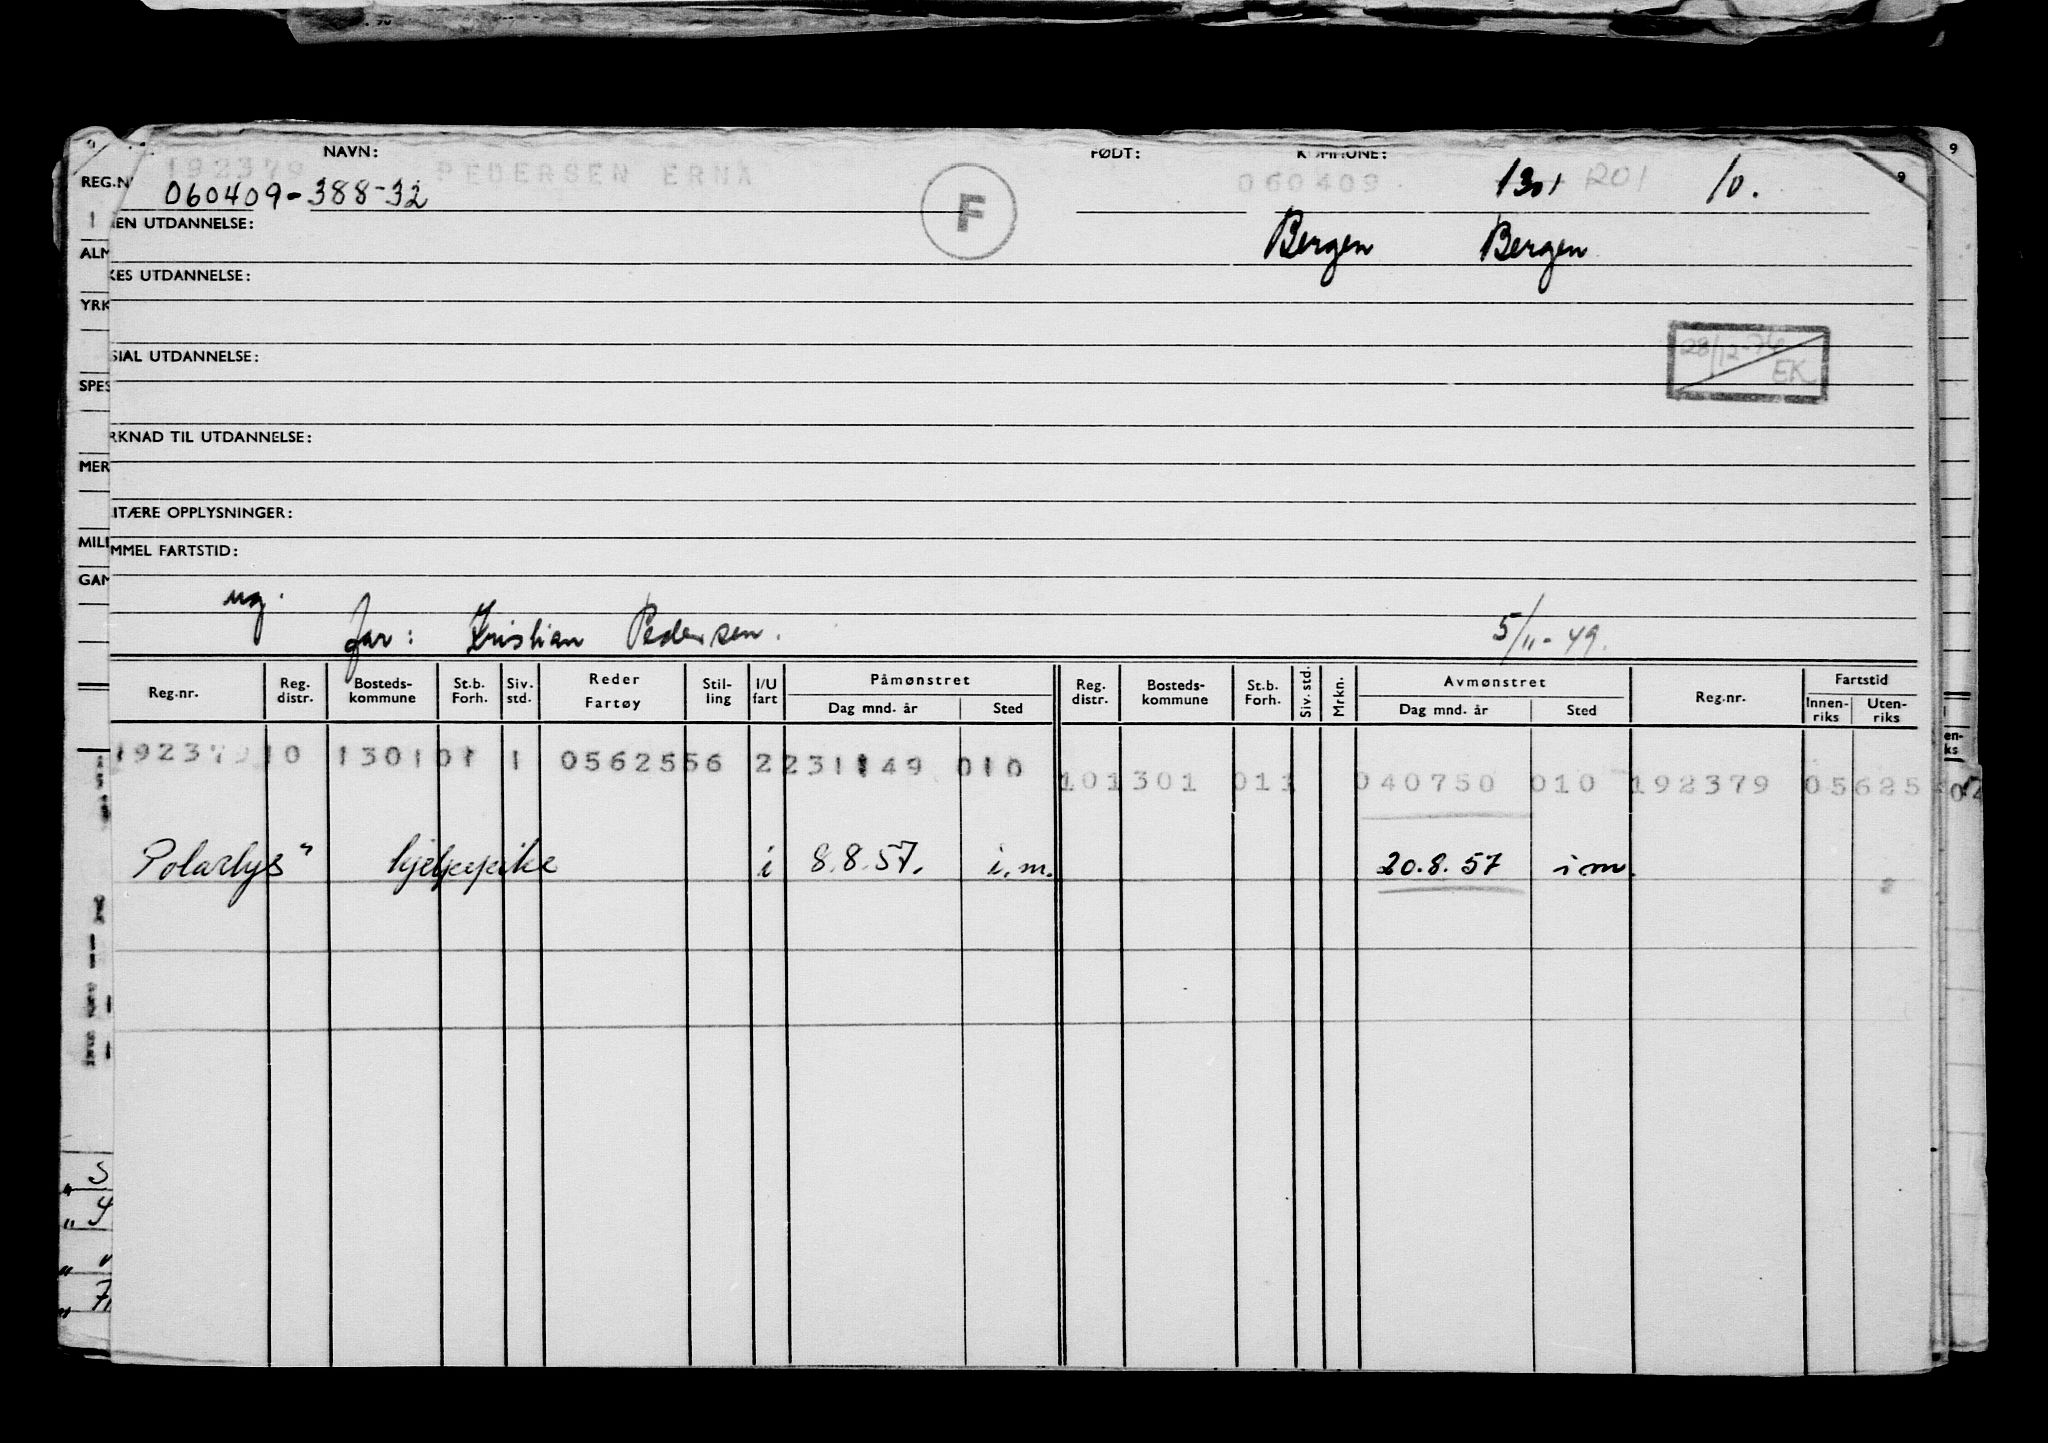 NAVN: FØDT: KOMMUNE:
192379 PEDERSEN ERNA 060409 1301 1201 10.
REG.N 060409-388-32
F
EN UTDANNELSE: Bergen Bergen
ALM
KES UTDANNELSE:
YRK
28/12-76 EK
SIAL UTDANNELSE:
SPES
RKNAD TIL UTDANNELSE:
MER
ITÆRE OPPLYSNINGER:
MILI
MMEL FARTSTID:
GAM
ug.
far: Kristian Pedersen. 5/11-49.
Reg.nr. Reg. distr. Bosteds-kommune St.b. Forh. Siv. std. Reder Fartøy Stil-ling I/U fart Påmønstret Dag mnd. år Sted Reg. distr. Bosteds-kommune St.b. Forh. Siv. std. Mrkn. Avmønstret Dag mnd. år Sted Reg.nr. Fartstid Innen-riks Uten-riks
192379 10 1301 01 1 0562556 2 231149 010
10 1301 011 040750 010 192379 05625
Polarlys" hjelpepike i 8.8.57. i.m. 20.8.57 i m.